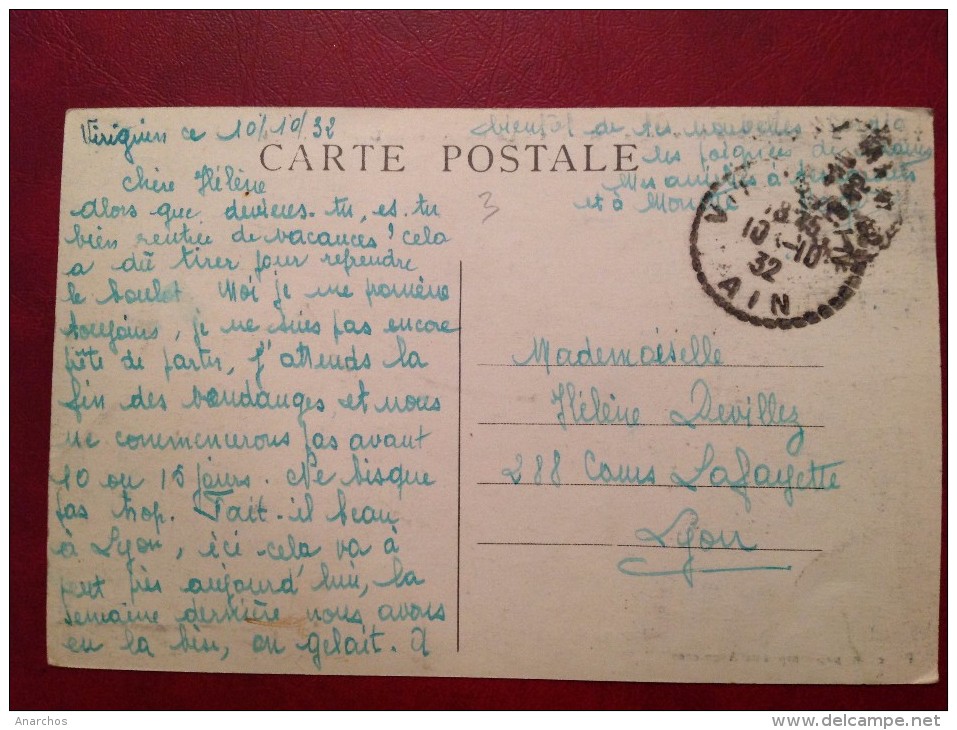 Virignin ce 10/10/32
CARTE POSTALE
Chère Hélène
Alors que deviens-tu, es-tu
bien rentrée de vacances? Cela
a dû tirer pour reprendre
le boulot Moi je me promène
toujours, je ne suis pas encore
prête de partir, J'attends la
fin des vendanges, et nous
ne commencerons pas avant
10 ou 15 jours. Ne bisque
pas trop. Fait-il beau
à Lyon, ici cela va à
peut près aujourd'hui, la
semaine dernière nous avons
eu la bise, on gelait. A
bientôt de tes nouvelles
les poignées de mains
Mes amitiés à tes
et à
3
10 -10
32
AIN
Mademoiselle
Hélène Devillez
288 Cours Lafayette
Lyon
Anarchos
www.delcampe.net